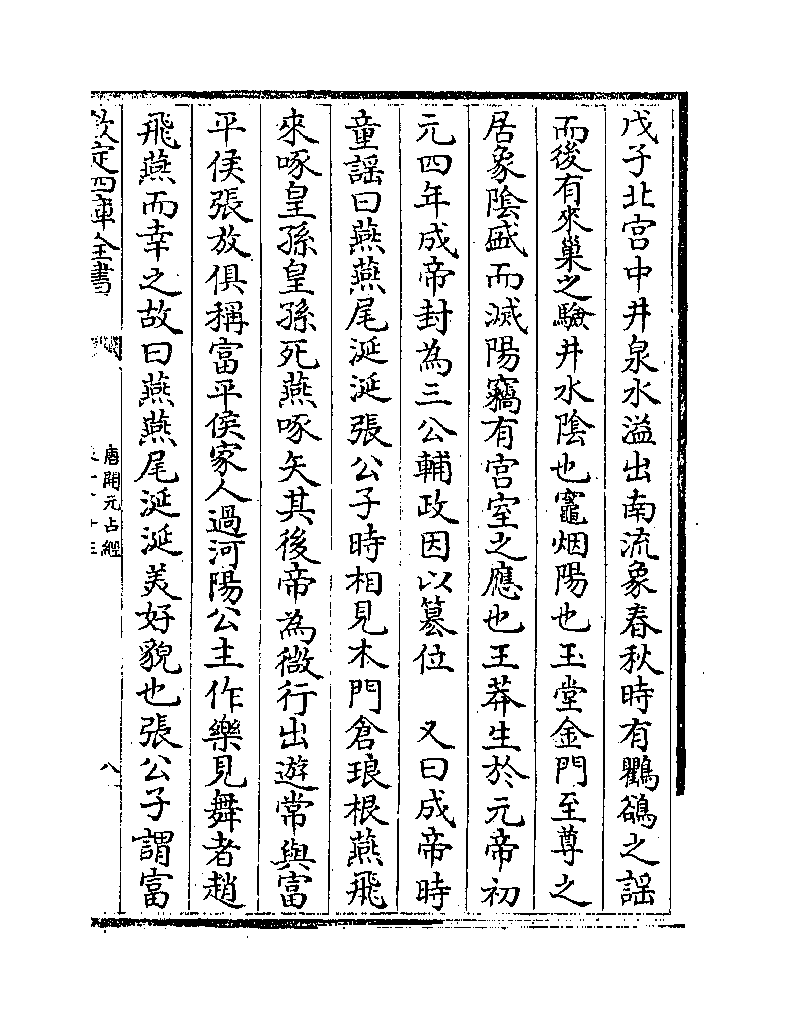 戊子北宫中井泉水溢出南流象春秋時有鸜鵒之謡
而後有來巢之驗井水陰也竈烟陽也玉堂金門至尊之
居象陰盛而滅陽竊有宫室之應也王莽生於元帝初
元四年成帝封為三公輔政因以簒位　又曰成帝時
童謡曰燕燕尾涎涎張公子時相見木門倉琅根燕飛
來啄皇孫皇孫死燕啄矢其後帝為微行出遊常與富
平侯張放俱稱富平侯家人過河陽公主作樂見舞者趙
飛燕而幸之故曰燕燕尾涎涎美好貌也張公子謂富
欽定四庫全書
唐開元占經
八